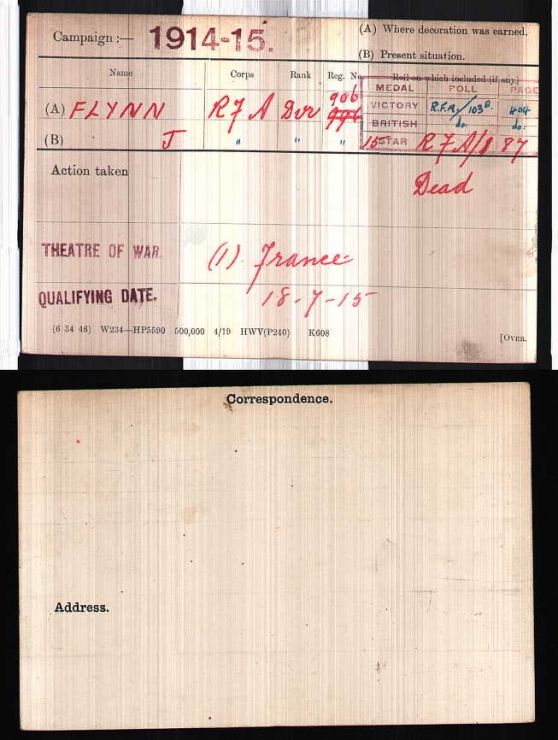 Campaign :— 1914-15.
(A) Where decoration was earned.
(B) Present situation.
Name Corps Rank Reg. No. Roll on which included (if any)
MEDAL ROLL PAGE
906
(A) FLYNN R F A Dvr 996
VICTORY R.F.A/103B. 404
BRITISH do. do.
(B) J " " " 15 STAR R F A/8 87
Action taken
Dead
THEATRE OF WAR. (1). France
QUALIFYING DATE. 18-7-15
(6 34 46) W234—HP5590 500,000 4/19 HWV(P240) K608 [OVER.
Correspondence.
Address.